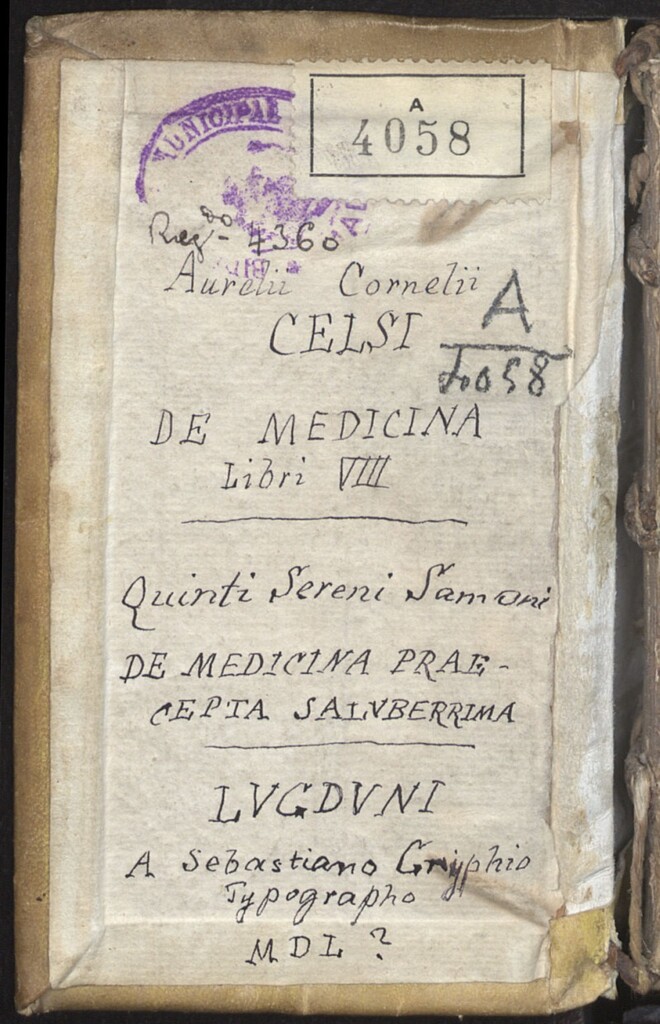 MUNICIPAL
A
4058
Reg-do 4360
Aurelii Cornelii
CELSI
A
4058
DE MEDICINA
Libri VIII
Quinti Sereni Samoni
DE MEDICINA PRAE-
CEPTA SALVBERRIMA
LVGDVNI
A Sebastiano Gryphio
Typographo
MDL?